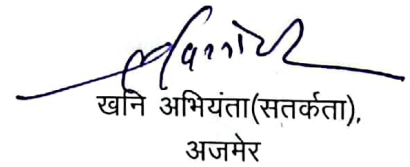 खनि अभियंता(सतर्कता),
अजमेर